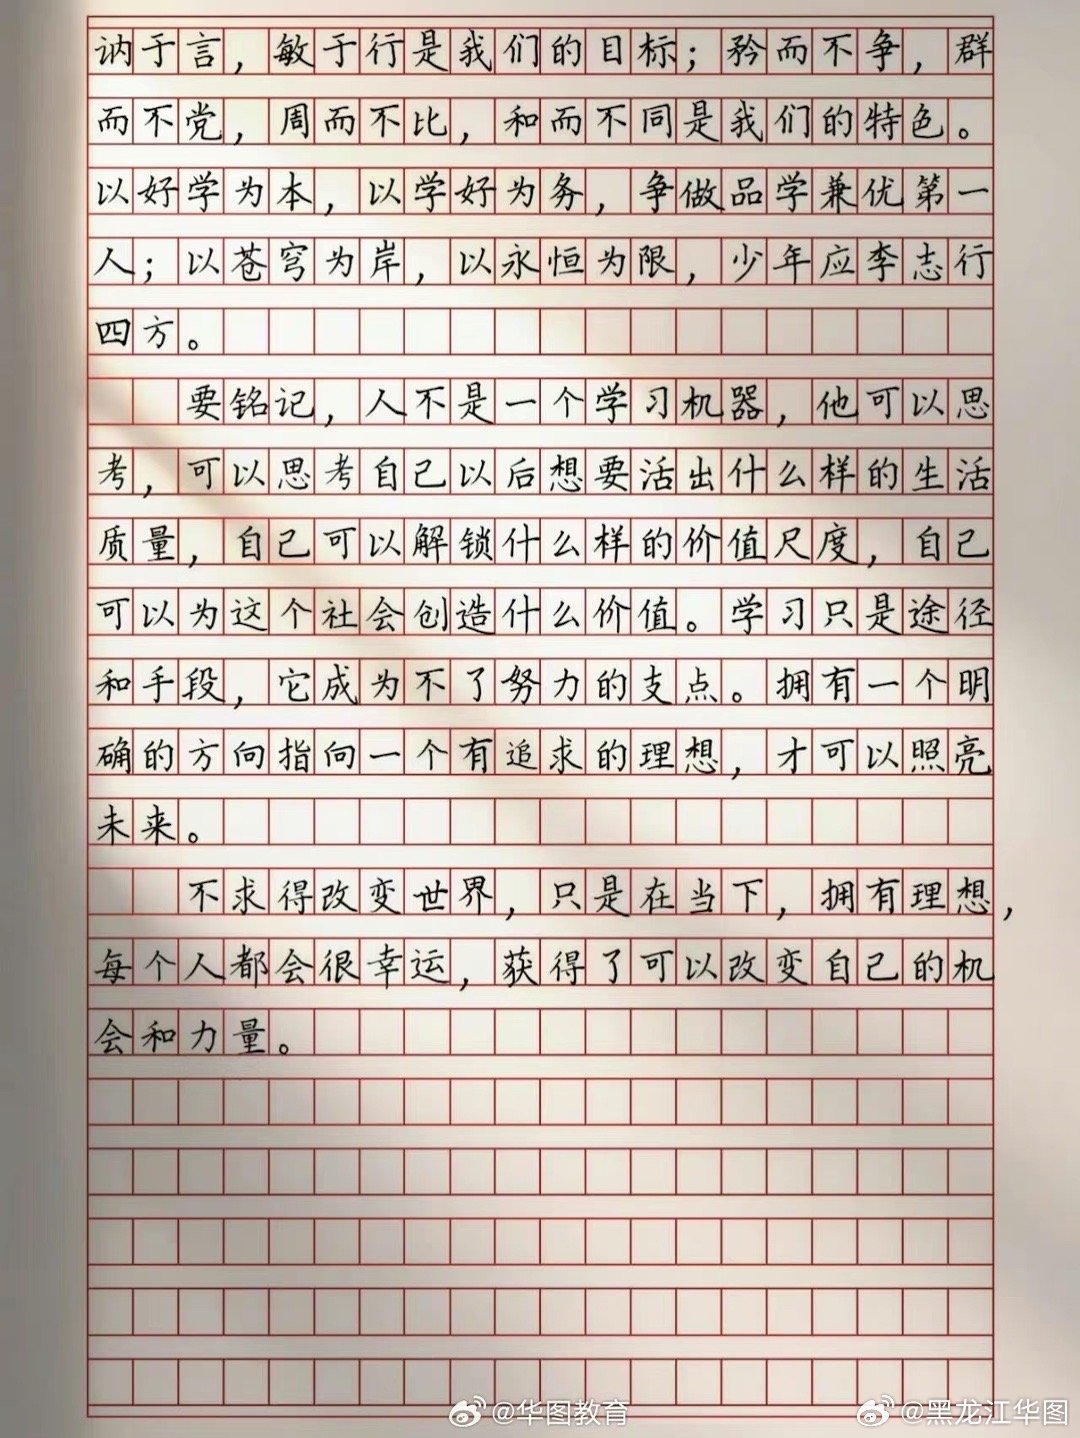 讷于言，敏于行是我们的目标；矜而不争，群
而不党，周而不比，和而不同是我们的特色。
以好学为本，以学好为务，争做品学兼优第一
人；以苍穹为岸，以永恒为限，少年应李志行
四方。
要铭记，人不是一个学习机器，他可以思
考，可以思考自己以后想要活出什么样的生活
质量，自己可以解锁什么样的价值尺度，自己
可以为这个社会创造什么价值。学习只是途径
和手段，它成为不了努力的支点。拥有一个明
确的方向指向一个有追求的理想，才可以照亮
未来。
不求得改变世界，只是在当下，拥有理想，
每个人都会很幸运，获得了可以改变自己的机
会和力量。
@华图教育
@黑龙江华图